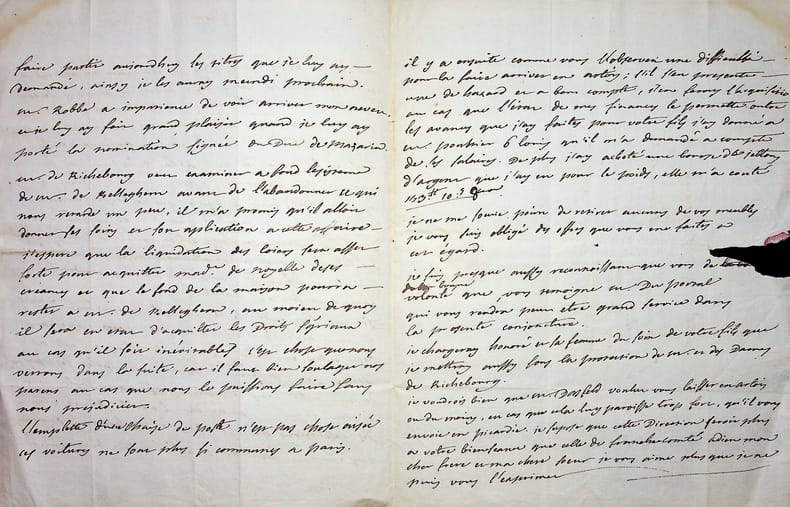 faire partir aujourdhuy les titres que je luy ay
demandé, ainsy je les auray mercredi prochain.
mr. Robbe a impatience de voir arriver mon neveu
et je luy ay fait grand plaisir quand je luy ay
porté la nomination signée du Duc de Mazarin.
mr. de Richebourg veut examiner a fond
de mr. de Belleghem avant de l'abandonner ce qui
nous retarde un peu, il m'a promis qu'il alloit
donner ses soins et son application a cette affaire
j'espere que la liquidation des loiers sera asses
forte pour acquitter madᵉ. de Noyelle de ses
creances et que le fond de la maison pourra
rester a mr. de Belleghem, au moien de quoy
il sera en etat d'acquitter les Droits
au cas qu'il soit inévitables c'est chose que nous
verrons dans la suite, car il faut bien soulager nos
parens au cas que nous le puissions faire sans
nous prejudicier.
l'emplette d'une chaise de poste n'est pas chose aisée
ces voitures ne sont plus si communes a paris.
il y a ensuite comme vous l'observez une difficulté
pour la faire arriver en artois; s'il s'en presente
une de hazard et a bon compte, j'en feray l'acquisition
au cas que l'etat de mes finances le permette outre
les avances que j'ay faites pour votre fils j'ay donné a
mr. 6 louis qu'il m'a demandé a compte
de ses salaires. De plus j'ay acheté une bourse de jettons
d'argent que j'ay eu pour le poids, elle m'a couté
je ne me soucie point de retirer aucuns de vos meubles
je vous suis obligé des offres que vous me faites a
cet egard.
je suis presque aussy reconnoissant que vous de
la bonne
volonté que vous temoigne mr. Du
qui vous rendra peut etre grand service dans
la presente conjoncture.
je chargeray honoré et la femme du soin de votre fils que
je mettray aussy sous la protection de mr. et des Dames
de Richebourg.
je voudrois bien que mr. voulut vous laisser en artois
ou du moins, en cas que cela luy paroisse trop fort, qu'il vous
envoie en picardie. je supose que cette Direction seroit plus
a votre bienseance que celle de franchecomté adieu mon
cher frere et ma chere soeur je vous aime plus que je ne
puis vous l'exprimer